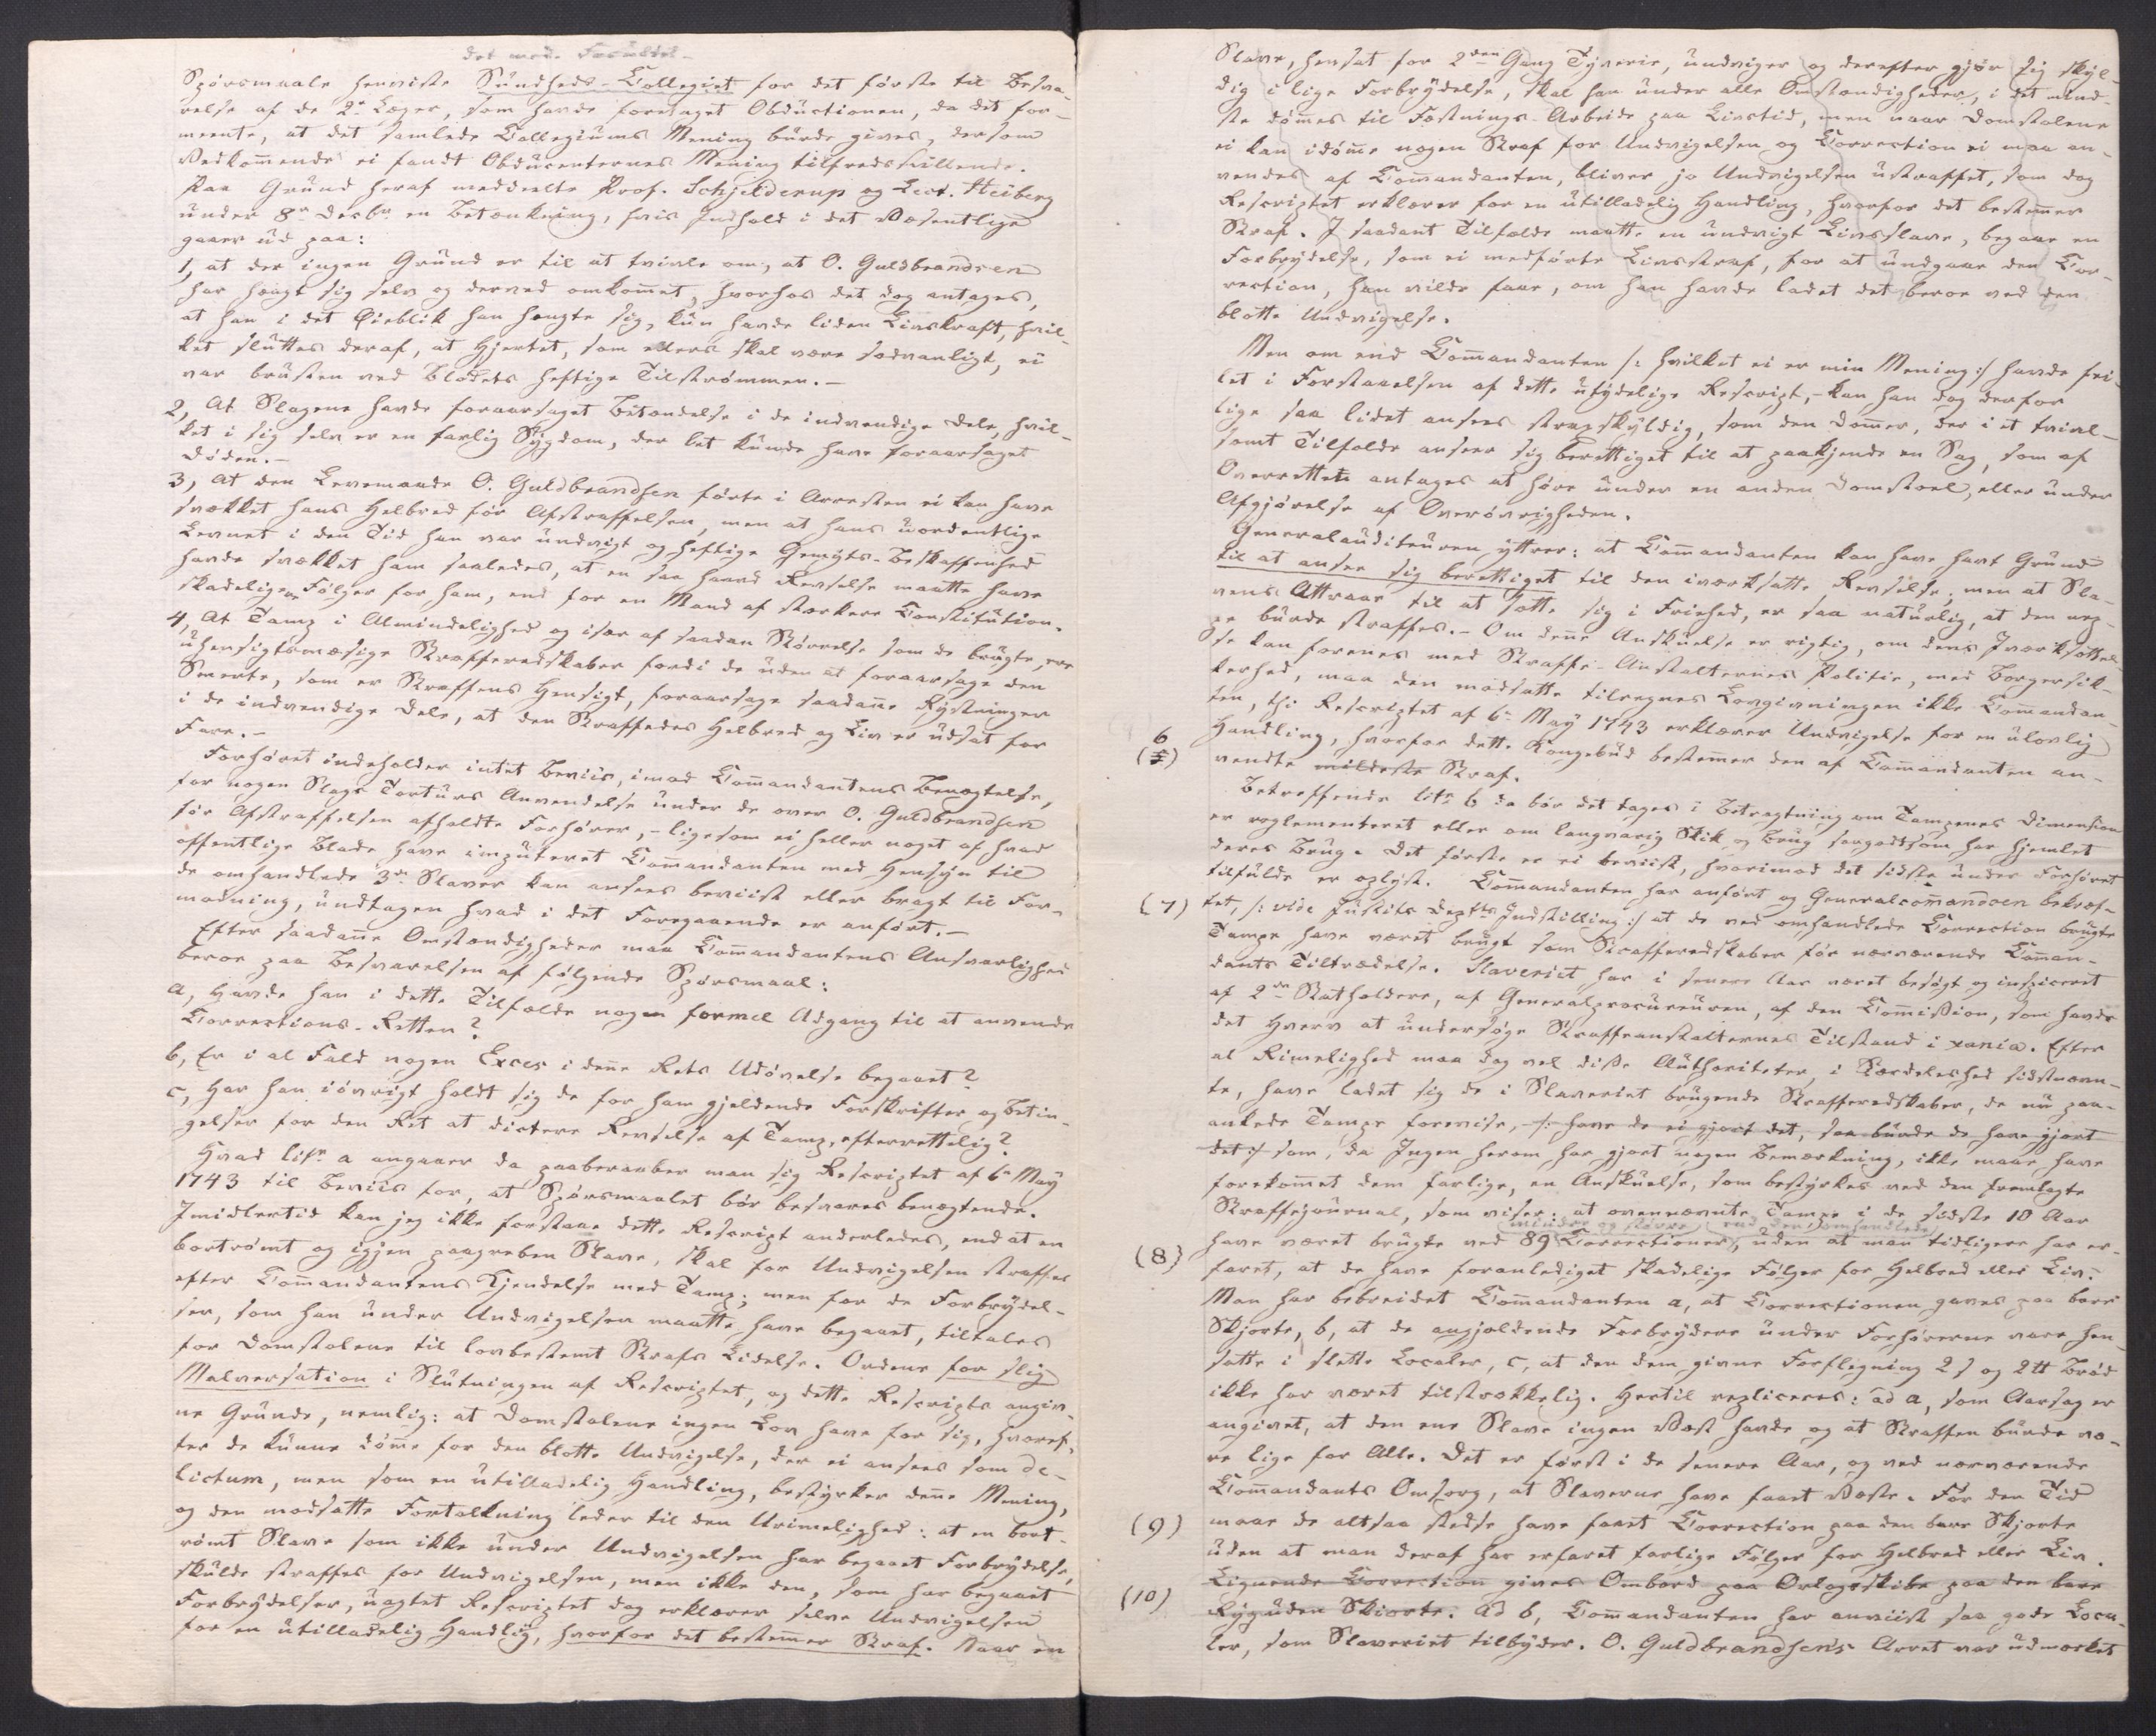 det med. Facultet -
Spørsmaale henviste Sundheds-Collegiet for det første til Besva-
relse af de 2de Læger, som havde foretaget Obductionen, da det for-
meente, at det samlede Collegiums Mening burde gives, dersom
Vedkommende ei fandt Obducenternes Mening tilfredsstillende.
Paa Grund heraf meddeelte Prof. Schjelderup og Lect. Heiberg
under 8de Decbr en Betænkning, hvis Indhold i det Væsentlige
gaaer ud paa:
1, at der ingen Grund er til at tvivle om, at O. Guldbrandsen
har hængt sig selv og derved omkommet, hvorhos det dog antages,
at han i det Øieblik han hængte sig, kun havde liden Livskraft, hvil-
ket sluttes deraf, at Hjertet, som ellers skal være sædvanligt, ei
var brusten ved Blodets heftige Tilstrømmen.-
2, At Slagene havde foraarsaget Betændelse i de indvendige Dele, hvil-
ket i sig selv er en farlig Sygdom, der let kunde have foraarsaget
Døden.-
3, At den Levemaade O. Guldbrandsen førte i Arresten ei kan have
svækket hans Helbred før Afstraffelsen, men at hans uordentlige
Levnet i den Tid han var undvigt og heftige Gemyts-Beskaffenhed
havde svækket ham saaledes, at en saa haard Revselse maatte have
skadeligere Følger for ham, end for en Mand af stærkere Constitution.
4, At Tamp i Almindelighed og især af saadan Størrelse som de brugte, ere
uhensigtsmæsige Strafferedskaber fordi de uden at foraarsage den
Smerte, som er Straffens Hensigt, foraarsage saadanne Rystninger
i de indvendige Dele, at den Straffedes Helbred og Liv er udsat for
Fare.-
Forhøret indeholder intet Beviis, imod Commandantens Benægtelse,
for nogen Slags Torturs Anvendelse under de over O. Guldbrandsen
før Afstraffelsen afholdte Forhører,- ligesom ei heller noget af hvad
offentlige Blade have imputeret Commandanten med Hensyn til
de omhandlede 3de Slaver kan ansees beviist eller bragt til For-
modning, undtagen hvad i det Foregaaende er anført.-
Efter saadanne Omstændigheder maa Commandantens Ansvarlighed
beroe paa Besvarelsen af følgende Spørsmaal:
a, Havde han i dette Tilfælde nogen formel Adgang til at anvende
Corrections-Retten?
b, Er i al Fald nogen Exces i denne Rets Udøvelse begaaet?
c, Har han iøvrigt holdt sig de for ham gjeldende Forskrifter og Betin-
gelser for den Ret at dictere Revselse af Tamp, efterrettelig?
Hvad litr a angaaer da paaberaaber man sig Rescriptet af 6te May
1743 til Beviis for, at Spørsmaalet bør besvares benægtende.
Imidlertid kan jeg ikke forstaae dette Rescript anderledes, end at en
bortrømt og igjen paagreben Slave, skal for Undvigelsen straffes
efter Commandantens Kjendelse med Tamp; men for de Forbrydel-
ser, som han under Undvigelsen maatte have begaaet, tiltales
for Domstolene til lovbestemt Strafs Lidelse. Ordene for slig
Malversation i Slutningen af Rescriptet, og dette Rescripts angiv-
ne Grunde, nemlig: at Domstolene ingen Lov have for sig, hvoref-
ter de kunne dømme for den blotte Undvigelse, der ei ansees som de-
lictum, men som en utilladelig Handling, bestyrker denne Mening,
og den modsatte Fortolkning leder til den Urimelighed: at en bort-
rømt Slave som ikke under Undvigelsen har begaaet Forbrydelse,
skulde straffes for Undvigelsen, men ikke den, som har begaaet
Forbrydelser, uagtet Rescriptet dog erklærer selve Undvigelsen
for en utilladelig Handlig, hvorfor det bestemmer Straf. Naar en
Slave, hensat for 2den Gang Tyverie, undviger og derefter gjør sig skyl-
dig i lige Forbrydelse, skal han under alle Omstændigheder, i det mind-
ste dømmes til Fæstnings-Arbeide paa Livstid, men naar Domstolene
ei kan idømme nogen Straf for Undvigelsen og Correction ei maa an-
vendes af Commandanten, bliver jo Undvigelsen ustraffet, som dog
Rescriptet erklærer for en utilladelig Handling, hvorfor det bestemmer
Straf. I saadant Tilfælde maatte en undvigt Livsslave, begaae en
Forbrydelse, som ei medførte Livsstraf, for at undgaae den Cor-
rection, han vilde faae, om han havde ladet det beroe ved den
blotte Undvigelse.
Men om end Commandanten /: hvilket ei er min Mening :/ havde fei-
let i Forstaaelsen af dette utydelige Rescript,- kan han dog derfor
lige saa lidet ansees strafskyldig, som den Dommer, der i et tvivl-
somt Tilfælde anseer sig berettiget til at paakjende en Sag, som af
Overretten antages at høre under en anden Domstoel, eller under
Afgjørelse af Overøvrigheden.
Generalauditeuren yttrer: at Commandanten kan have havt Grund
til at ansee sig berettiget til den iværksatte Revselse; men at Sla-
vens Attraae til at sætte sig i Friehed, er saa naturlig, at den nep-
pe burde straffes.- Om denne Anskuelse er rigtig, om dens Iværksættel-
se kan forenes med Straffe-Anstalternes Politie, med Borgersik-
kerhed, maa den modsatte tilregnes Lovgivningen ikke Commandan-
ten, thi Rescriptet af 6te May 1743 erklærer Undvigelse for en ulovlig
Handling, hvorfor dette Kongebud bestemmer den af Commandanten an-
6
(5) vendte mildeste Straf.
Betreffende litr b da bør det tages i Betragtning om Tampenes Dimension
er reglementeret eller om langvarig Skik og Brug saagodtsom har hjemlet
deres Brug. Det første er ei beviist, hvorimod det sidste under Forhøret
tilfulde er oplyst. Commandanten har anført og Generalcommandoen bekræf-
(7) tet, /: vide Justits Deptts Indstilling :/ at de ved omhandlede Correction brugte
Tampe have været brugt som Strafferedskaber før nærværende Comman-
dants Tiltrædelse. Slaveriet har i senere Aar været besøgt og inspiceret
af 2de Statholdere, af Generalprocureuren, af den Commission, som havde
det Hverv at undersøge Straffeanstalternes Tilstand i xania. Efter
al Rimelighed maa dog vel disse Authoriteter, i Særdeleshed sidstnævn-
te, have ladet sig de i Slaveriet brugende Strafferedskaber, de nu paa-
ankede Tampe forevise, /: have de ei gjort det, saa burde de have gjort
det :/ som, da Ingen herom har gjort nogen Bemærkning, ikke maae have
forekommet dem farlige, en Anskuelse, som bestyrkes ved den fremlagte
Straffejournal, som viser: at ovennævnte Tampe i de sidste 10 Aar
mindre og større end den omhandlede
(8) have været brugte ved 89 Correctioner, uden at man tidligere har er-
faret, at de have foranlediget skadelige Følger for Helbred eller Liv.
Man har bebreidet Commandanten a, at Correctionen gaves paa bare
Skjorte, b, at de angjældende Forbrydere under Forhørerne vare hen-
satte i slette Localer, c, at den dem givne Forflegning 2 s og 2 tt Brød
ikke har været tilstrækkelig. Hertil repliceres: ad a, som Aarsag er
angivet, at den ene Slave ingen Vest havde og at Straffen burde væ-
re lige for Alle. Det er først i de senere Aar, og ved nærværende
Commandants Omsorg, at Slaverne have faaet Veste. Før den Tid
(9) maae de altsaa stedse have faaet Correction paa den bare Skjorte
uden at man deraf har erfaret farlige Følger for Helbred eller Liv.
Lignende Correction gives Ombord paa Orlogsskibe paa den bare
(10) Ryg uden Skiorte. ad b, Commandanten har anviist saa gode Loca-
ler, som Slaveriet tilbyder. O. Guldbrandsens Arrest var udmærket